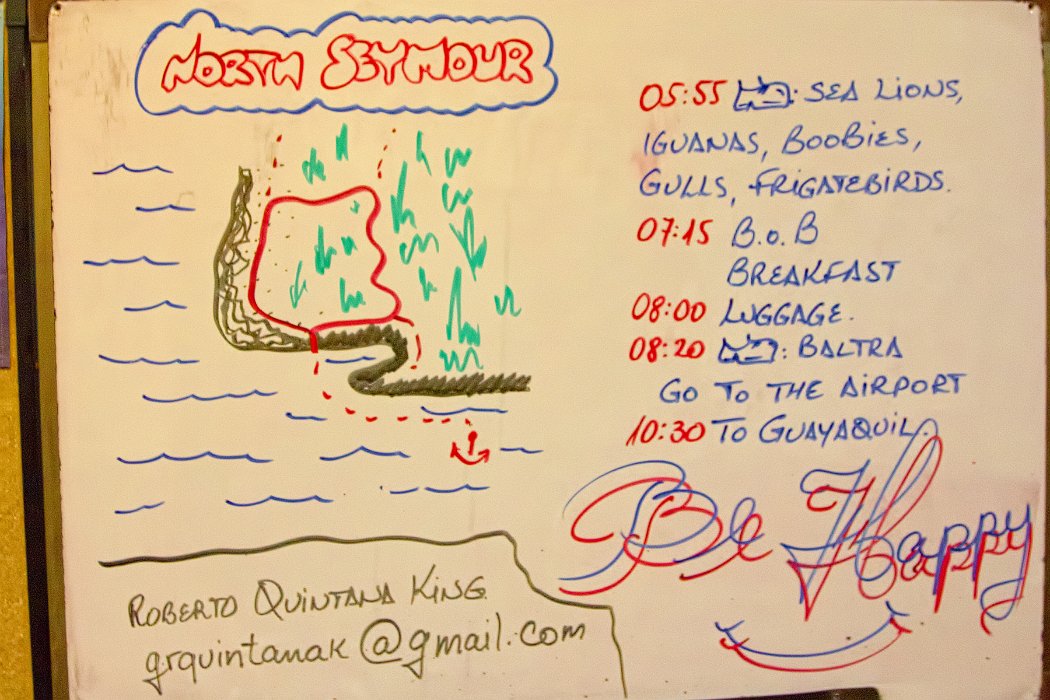 NORTH SEYMOUR
05:55 : SEA LIONS,
IGUANAS, BOOBIES,
GULLS, FRIGATEBIRDS.
07:15 B.O.B
BREAKFAST
08:00 LUGGAGE.
08:20 : BALTRA
GO TO THE AIRPORT
10:30 TO GUAYAQUIL.
Be Happy
ROBERTO QUINTANA KING
grquintanak@gmail.com